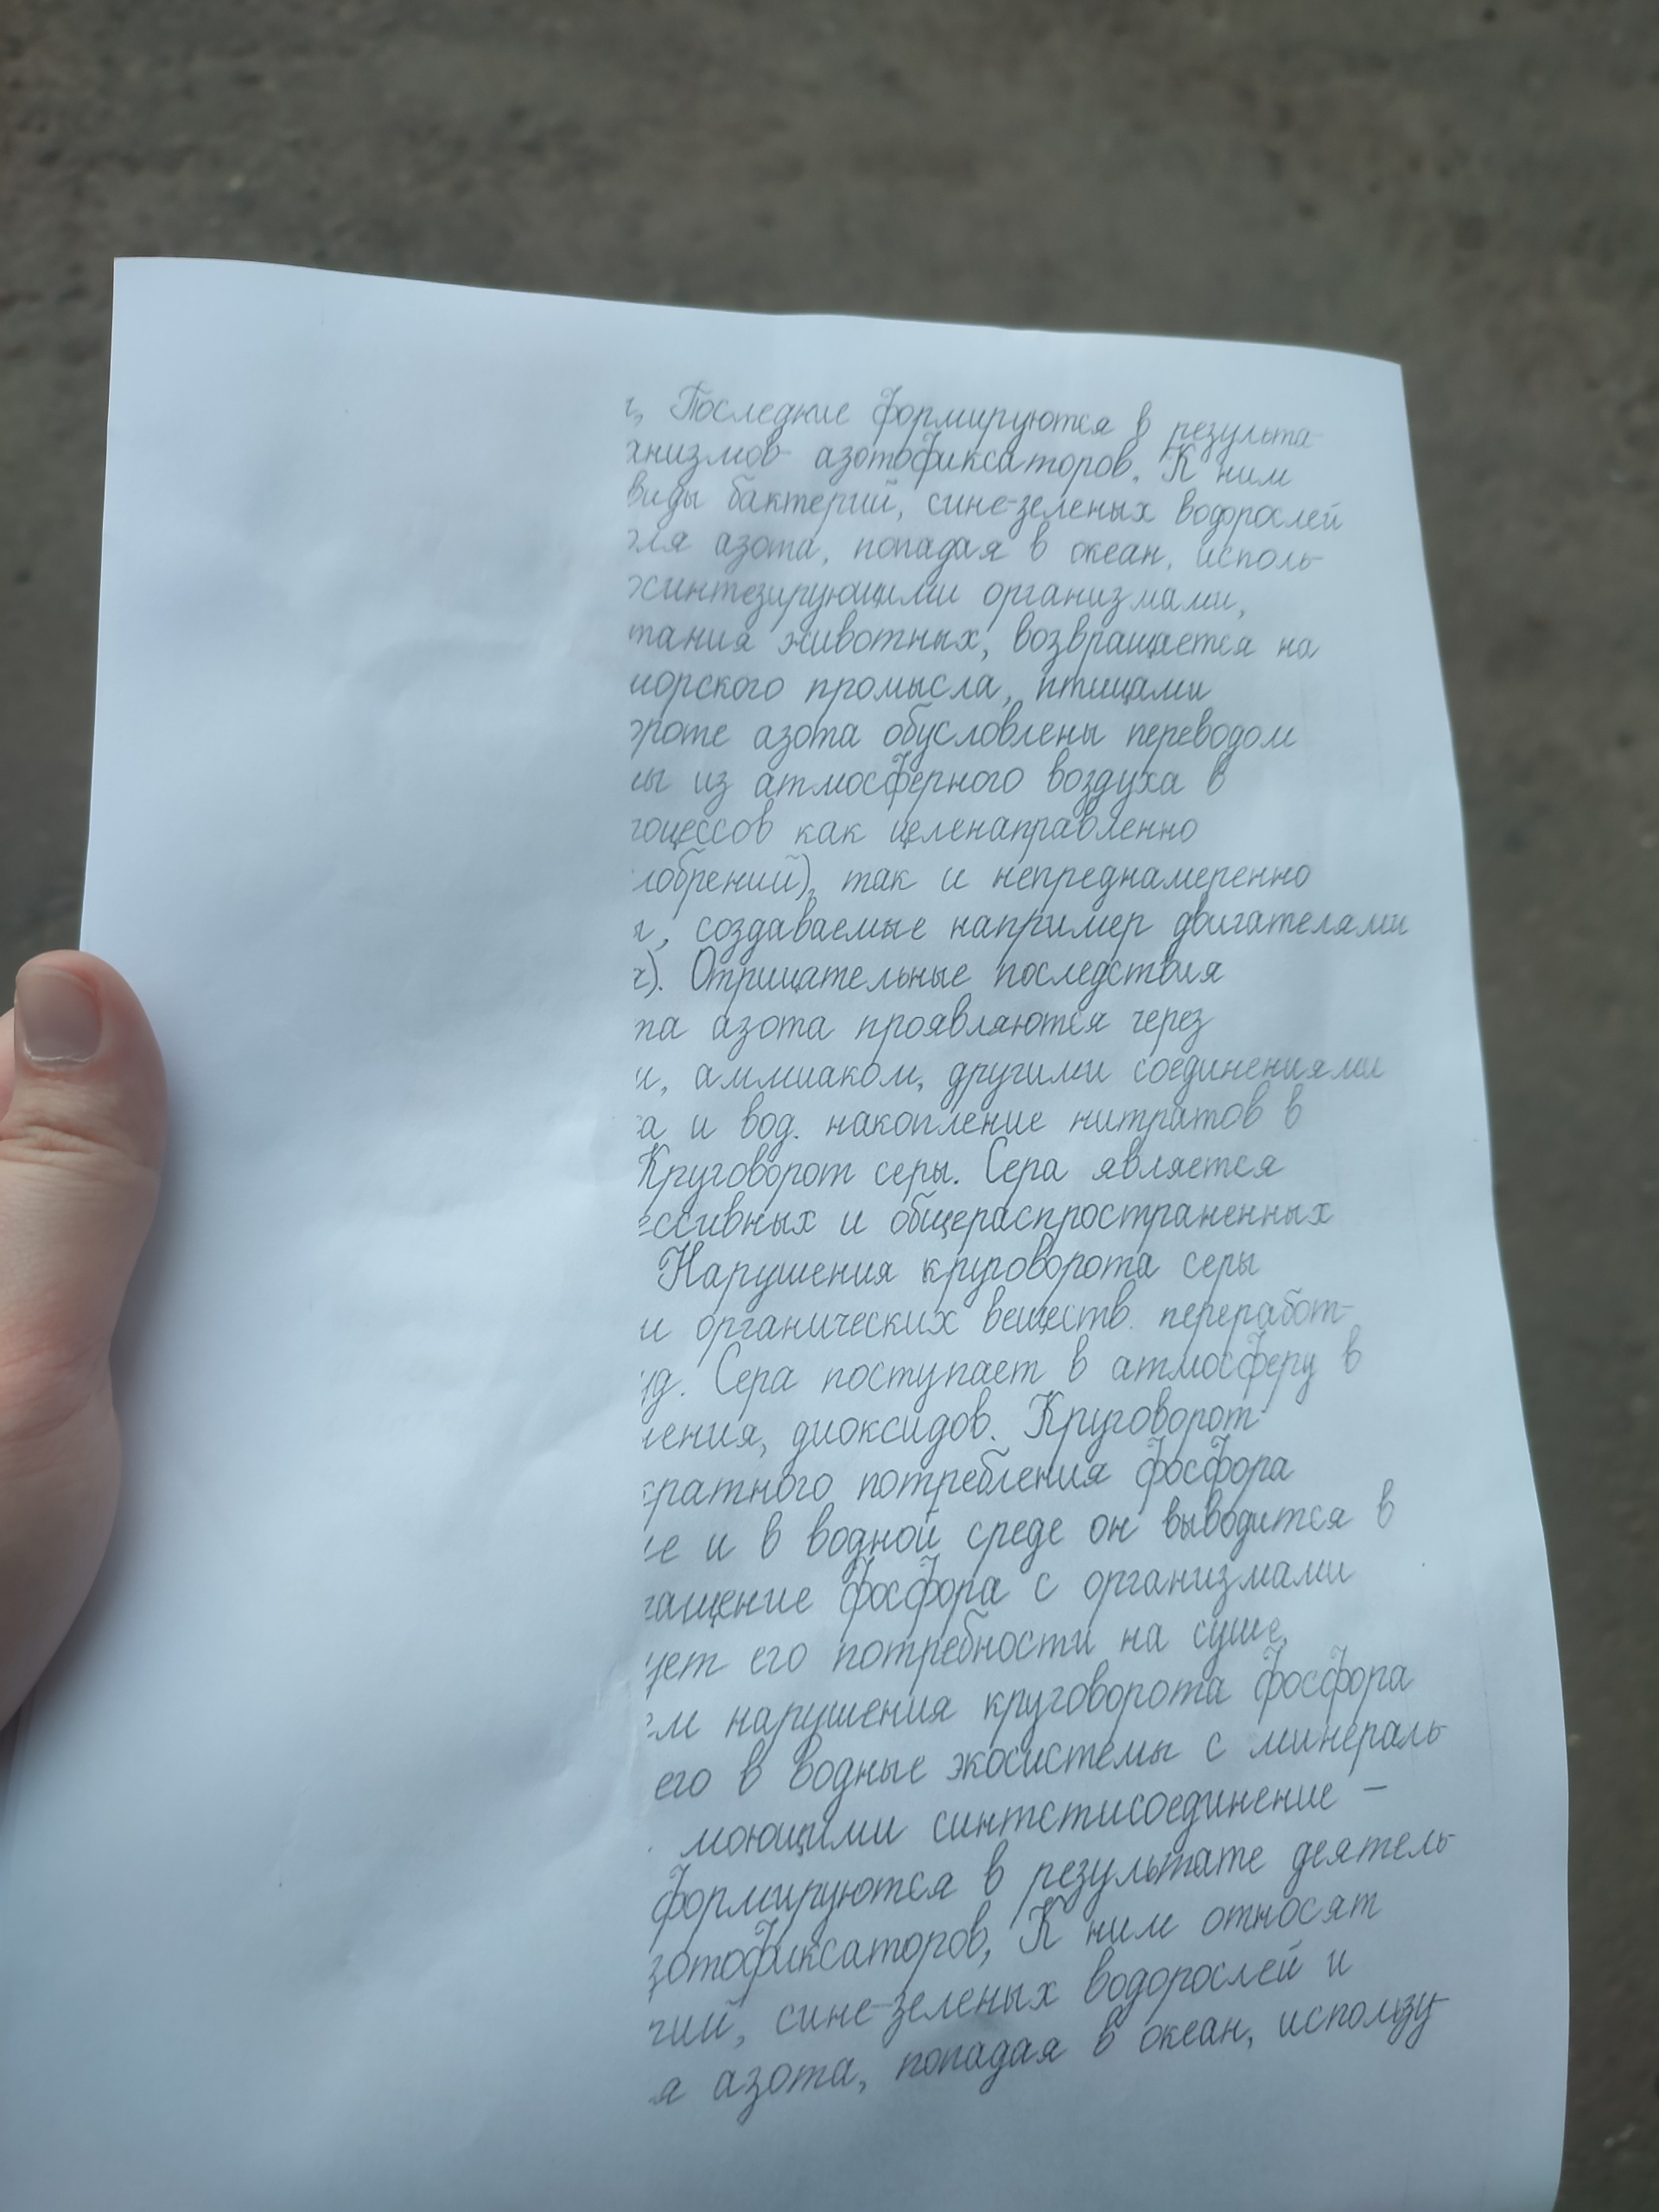 , Последние формируются в результа-
низмов азотофиксаторов. К ним
виды бактерий, сине-зеленых водорослей
ля азота, попадая в океан, исполь-
синтезирующими организмами,
тания животных, возвращается на
морского промысла, птицами
ороте азота обусловлены переводом
ы из атмосферного воздуха в
роцессов как целенаправленно
добрений), так и непреднамеренно
, создаваемые например двигателями
). Отрицательные последствия
та азота проявляются через
и, аммиаком, другими соединениями
а и вод. накопление нитратов в
Круговорот серы. Сера является
ессивных и общераспространенных
Нарушения круговорота серы
и органических веществ. переработ-
уд. Сера поступает в атмосферу в
нения, диоксидов. Круговорот
кратного потребления фосфора
е и в водной среде он выводится в
ращение фосфора с организмами
ует его потребности на суше,
ем нарушения круговорота фосфора
его в водные экосистемы с минераль-
моющими синтетисоединение –
формируются в результате деятель-
зотофиксаторов, К ним относят
рий, сине-зеленых водорослей и
я азота, попадая в океан, использу-